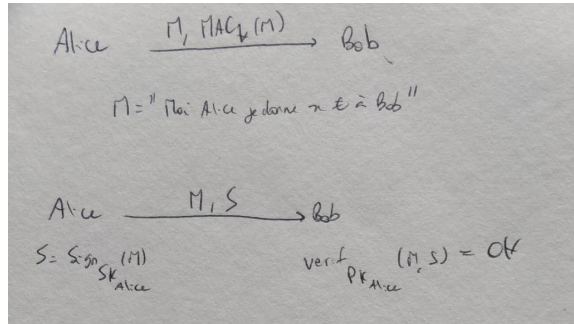 Alice M, MAC_k(M) Bob
M = "Moi Alice je donne n € à Bob"
Alice M, S Bob
S = Sign_{SK_Alice}(M) verif_{PK_Alice}(M, S) = OK